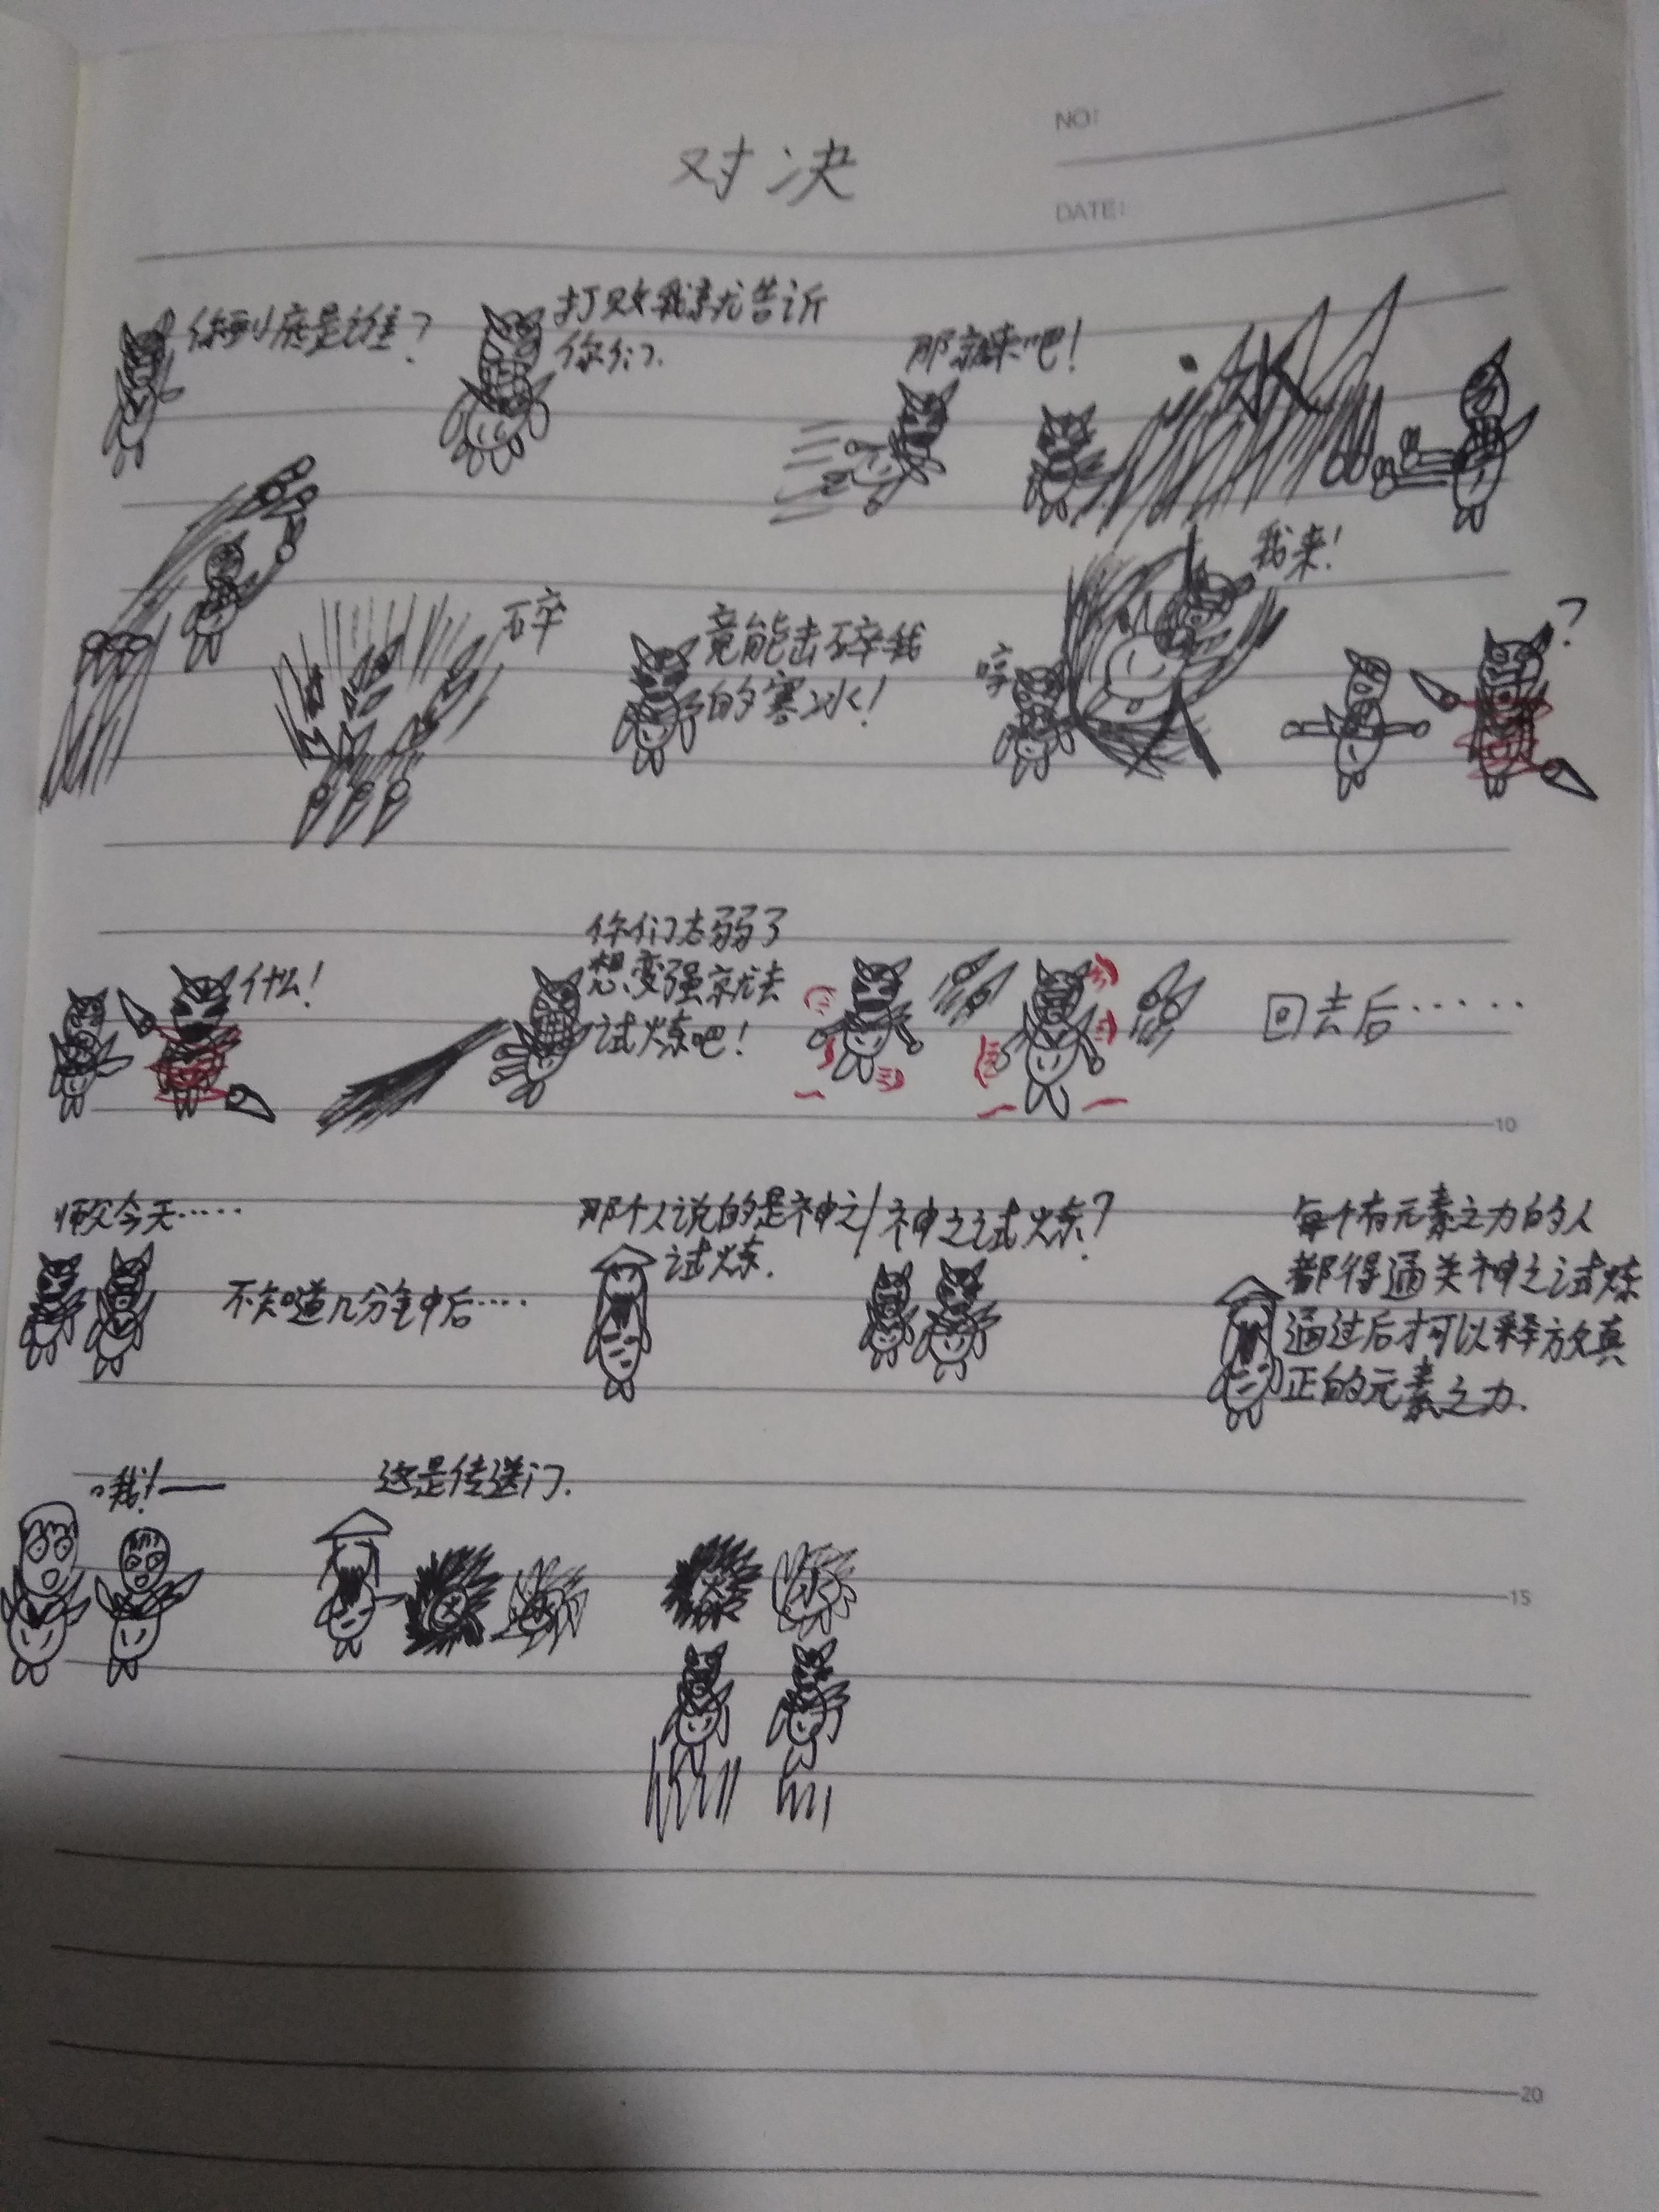 NO:
对决
DATE:
你到底是谁?
打败我就告诉
你们.
那就来吧!
冰
我来!
碎
竟能击碎我
的寒冰!
哼
火
?
什么!
你们太弱了
想变强就去
试炼吧!
回去后······
10
师父今天·····
不知道几分钟后····
那个人说的是神之
试炼.
神之试炼?
每个有元素之力的人
都得通关神之试炼
通过后才可以释放真
正的元素之力.
哦!——
这是传送门.
火
冰
火
冰
15
20